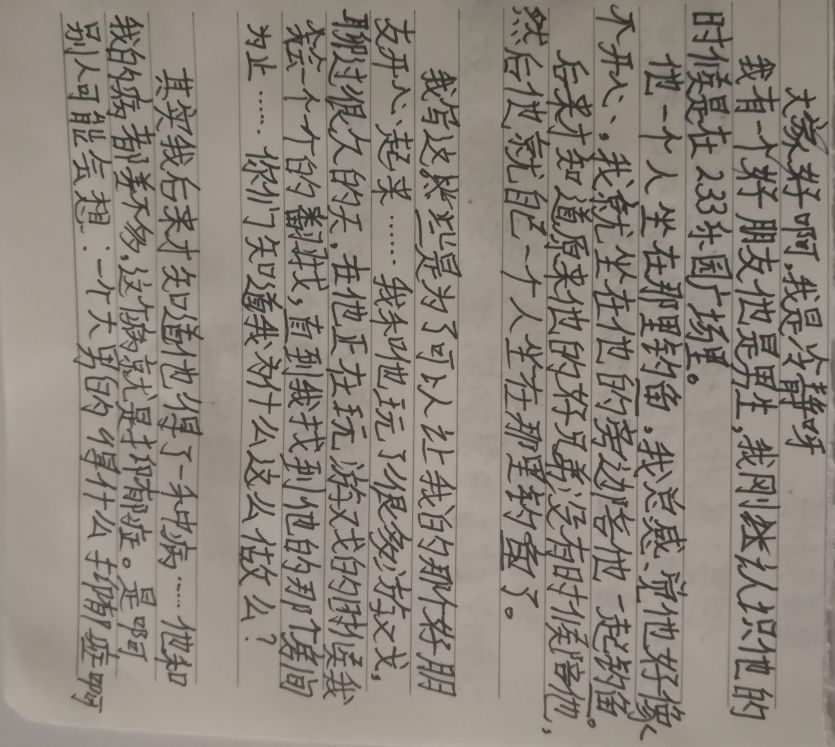 大家好啊,我是冷静呀
我有一个好朋友他是男生,我刚经认识他的
时候是在233乐园广场里。
他一个人坐在那里钓鱼。我总感觉他好像
不开心、我就坐在他的旁边陪他一起钓鱼。
后来才知道原来他的好兄弟没有时候陪他,
然后他就自己一个人坐在那里钓鱼了。
我写这些是为了可以让我的那个好朋
友开心起来……我和他玩了很多游戏,
聊过很久的天,在他正在玩游戏的时候我
会一个个的翻游戏,直到我找到他的那个房间
为止……你们知道我为什么这么做么?
其实我后来才知道他得了一种病……他和
我的病都差不多,这个病就是抑郁症。是啊
别人可能会想:一个大男的得什么抑郁症啊